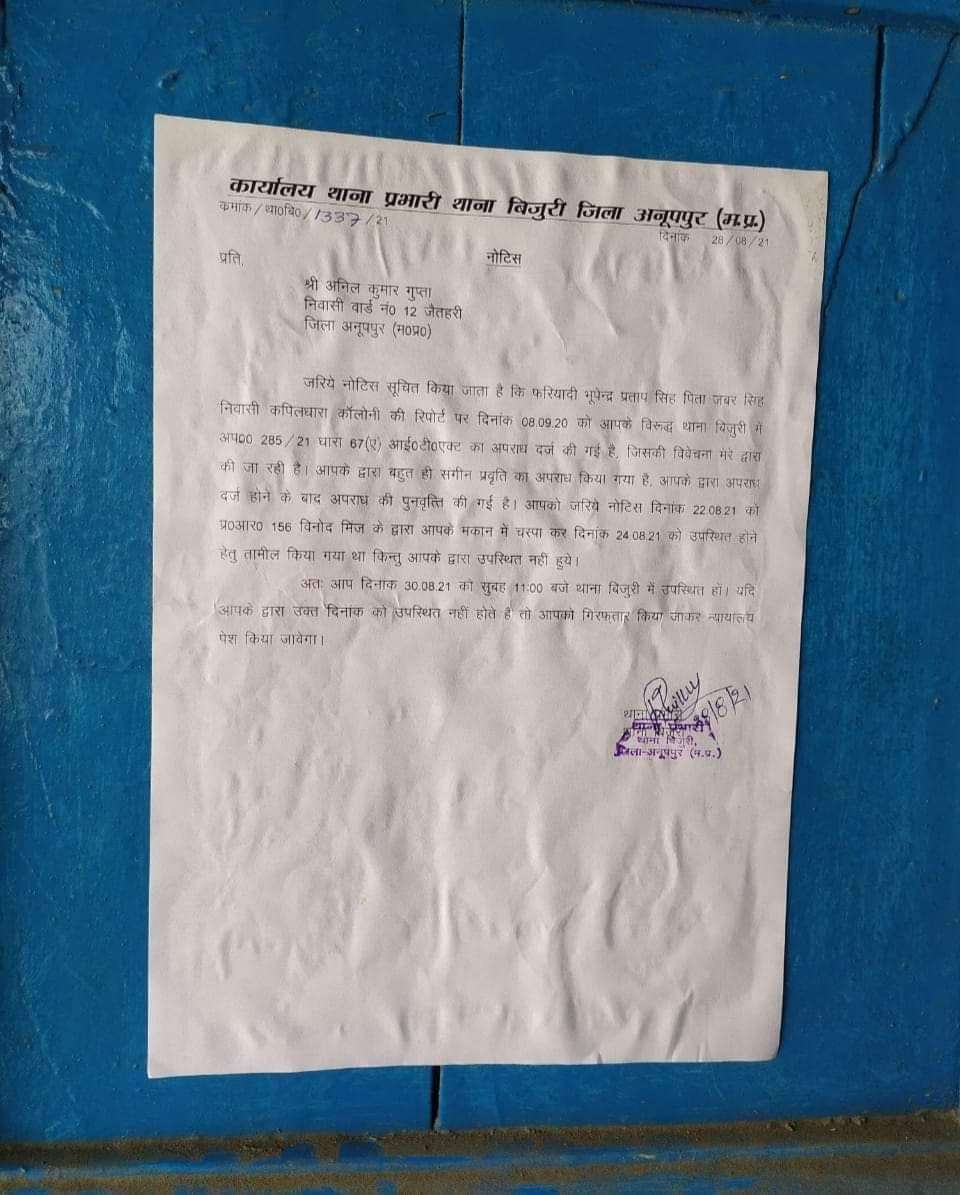 कार्यालय थाना प्रभारी थाना बिजुरी जिला अनूपपुर (म.प्र.)
कमांक / था0बि0 / 1337 / 21
दिनांक 28 / 08 / 21
प्रति,
नोटिस
श्री अनिल कुमार गुप्ता
निवासी वार्ड नं0 12 जैतहरी
जिला अनूपपुर (म0प्र0)
जरिये नोटिस सूचित किया जाता है कि फरियादी भूपेन्द्र प्रताप सिह पिता जबर सिह
निवासी कपिलधारा कॉलोनी की रिपोर्ट पर दिनांक 08.09.20 को आपके विरूद्ध थाना बिजुरी में
अप00 285 / 21 धारा 67(ए) आई0टी0एक्ट का अपराध दर्ज की गई है, जिसकी विवेचना मेरे द्वारा
की जा रही है। आपके द्वारा बहुत ही संगीन प्रवृति का अपराध किया गया है, आपके द्वारा अपराध
दर्ज होने के बाद अपराध की पुनवृत्ति की गई है। आपको जरिये नोटिस दिनांक 22.08.21 को
प्र0आर0 156 विनोद मिंज के द्वारा आपके मकान में चस्पा कर दिनांक 24.08.21 को उपस्थित होने
हेतु तामील किया गया था किन्तु आपके द्वारा उपस्थित नही हुये।
अतः आप दिनांक 30.08.21 को सुबह 11:00 बजे थाना बिजुरी में उपस्थित हों। यदि
आपके द्वारा उक्त दिनांक को उपस्थित नहीं होते है तो आपको गिरफतार किया जाकर न्यायालय
पेश किया जावेगा।
28/8/21
थाना प्रभारी
थाना बिजुरी,
जिला-अनूपपुर (म.प्र.)